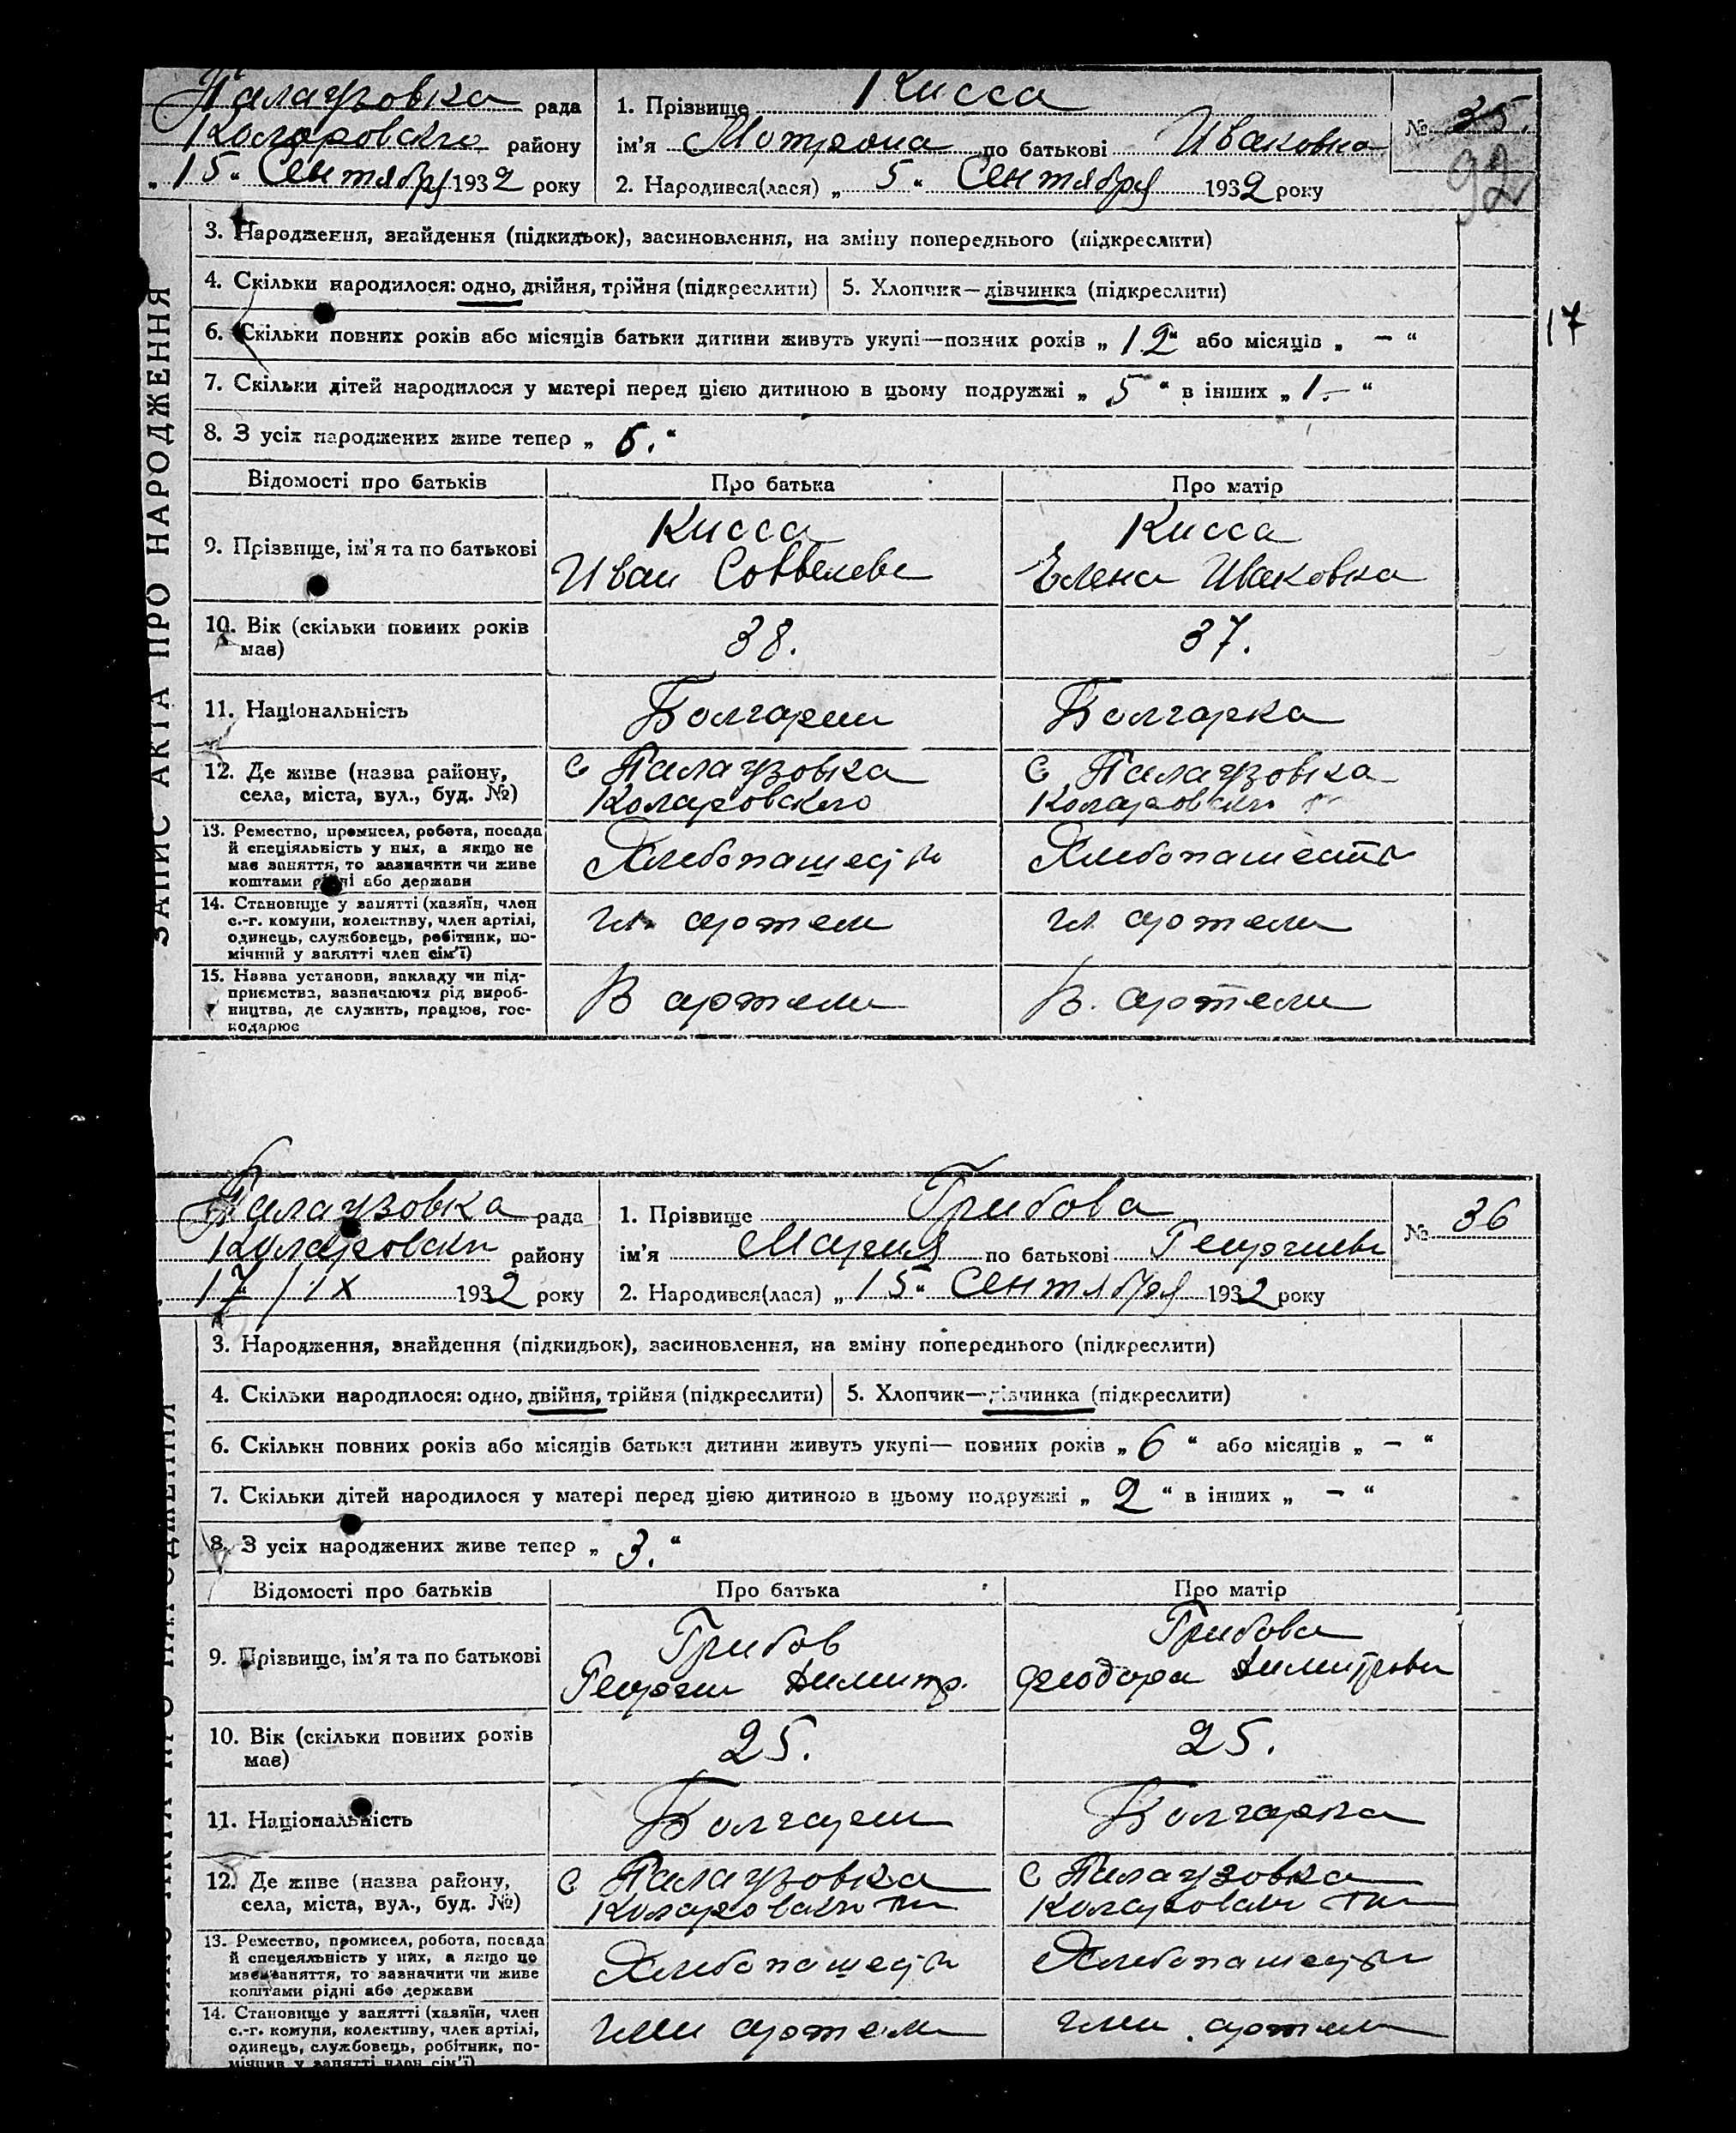 Палаузовка рада
Коларовского району
„15“ Сентября 1932 року
1. Прізвище Кисса
ім’я Мотрона по батькові Ивановна
2. Народився(лася) „5“ Сентября 1932 року
№ 35.
92
17
ЗАПИС АКТА ПРО НАРОДЖЕННЯ
3. Народження, знайдення (підкидьок), засиновлення, на зміну попереднього (підкреслити)
4. Скільки народилося: одно, двійня, трійня (підкреслити) 5. Хлопчик—дівчинка (підкреслити)
6. Скільки повних років або місяців батьки дитини живуть укупі—повних років „12“ або місяців „ — “
7. Скільки дітей народилося у матері перед цією дитиною в цьому подружжі „ 5 “ в інших „ 1.— “
8. З усіх народжених живе тепер „ 6. “
Відомості про батьків Про батька Про матір
9. Прізвище, ім’я та по батькові
Кисса
Иван
Кисса
Елена Ивановна
10. Вік (скільки повних років
має)
38.
37.
11. Національність
Болгарин
Болгарка
12. Де живе (назва району,
села, міста, вул., буд. №)
с Палаузовка
Коларовского
с Палаузовка
Коларовского
13. Ремество, промисел, робота, посада
й спеціяльність у них, а якщо не
має заняття, то зазначити чи живе
коштами рідні або держави
Хлебопашество
Хлебопашество
14. Становище у занятті (хазяїн, член
с.-г. комуни, колективу, член артілі,
одинець, службовець, робітник, по-
мічний у занятті член сім’ї)
чл. артели
чл артели
15. Назва установи, закладу чи під-
приємства, зазначаючи рід вироб-
ництва, де служить, працює, гос-
подарює
В артели
В. артели
Палаузовка рада
Коларовски району
17/IX 1932 року
1. Прізвище Грибова
ім’я Мария по батькові Георгиевн
2. Народився(лася) „15“ Сентября 1932 року
№ 36
3. Народження, знайдення (підкидьок), засиновлення, на зміну попереднього (підкреслити)
4. Скільки народилося: одно, двійня, трійня (підкреслити) 5. Хлопчик—дівчинка (підкреслити)
6. Скільки повних років або місяців батьки дитини живуть укупі— повних років „ 6 “ або місяців „ — “
7. Скільки дітей народилося у матері перед цією дитиною в цьому подружжі „ 2 “ в інших „ — “
8. З усіх народжених живе тепер „ 3. “
Відомості про батьків Про батька Про матір
9. Прізвище, ім’я та по батькові
Грибов
Георгии Димитр.
Грибова
Феодора Димитровн
10. Вік (скільки повних років
має)
25.
25.
11. Національність
Болгарин
Болгарка
12. Де живе (назва району,
села, міста, вул., буд. №)
с Палаузовка
Коларовского
с Палаузовка
Коларовски
13. Ремество, промисел, робота, посада
й спецеяльність у них, а якщо не
має заняття, то зазначити чи живе
коштами рідні або держави
Хлебопашество
Хлебопашество
14. Становище у занятті (хазяїн, член
с.-г. комуни, колективу, член артілі,
одинець, службовець, робітник, по-
мічник у занятті член сім’ї)
член артели
член артели